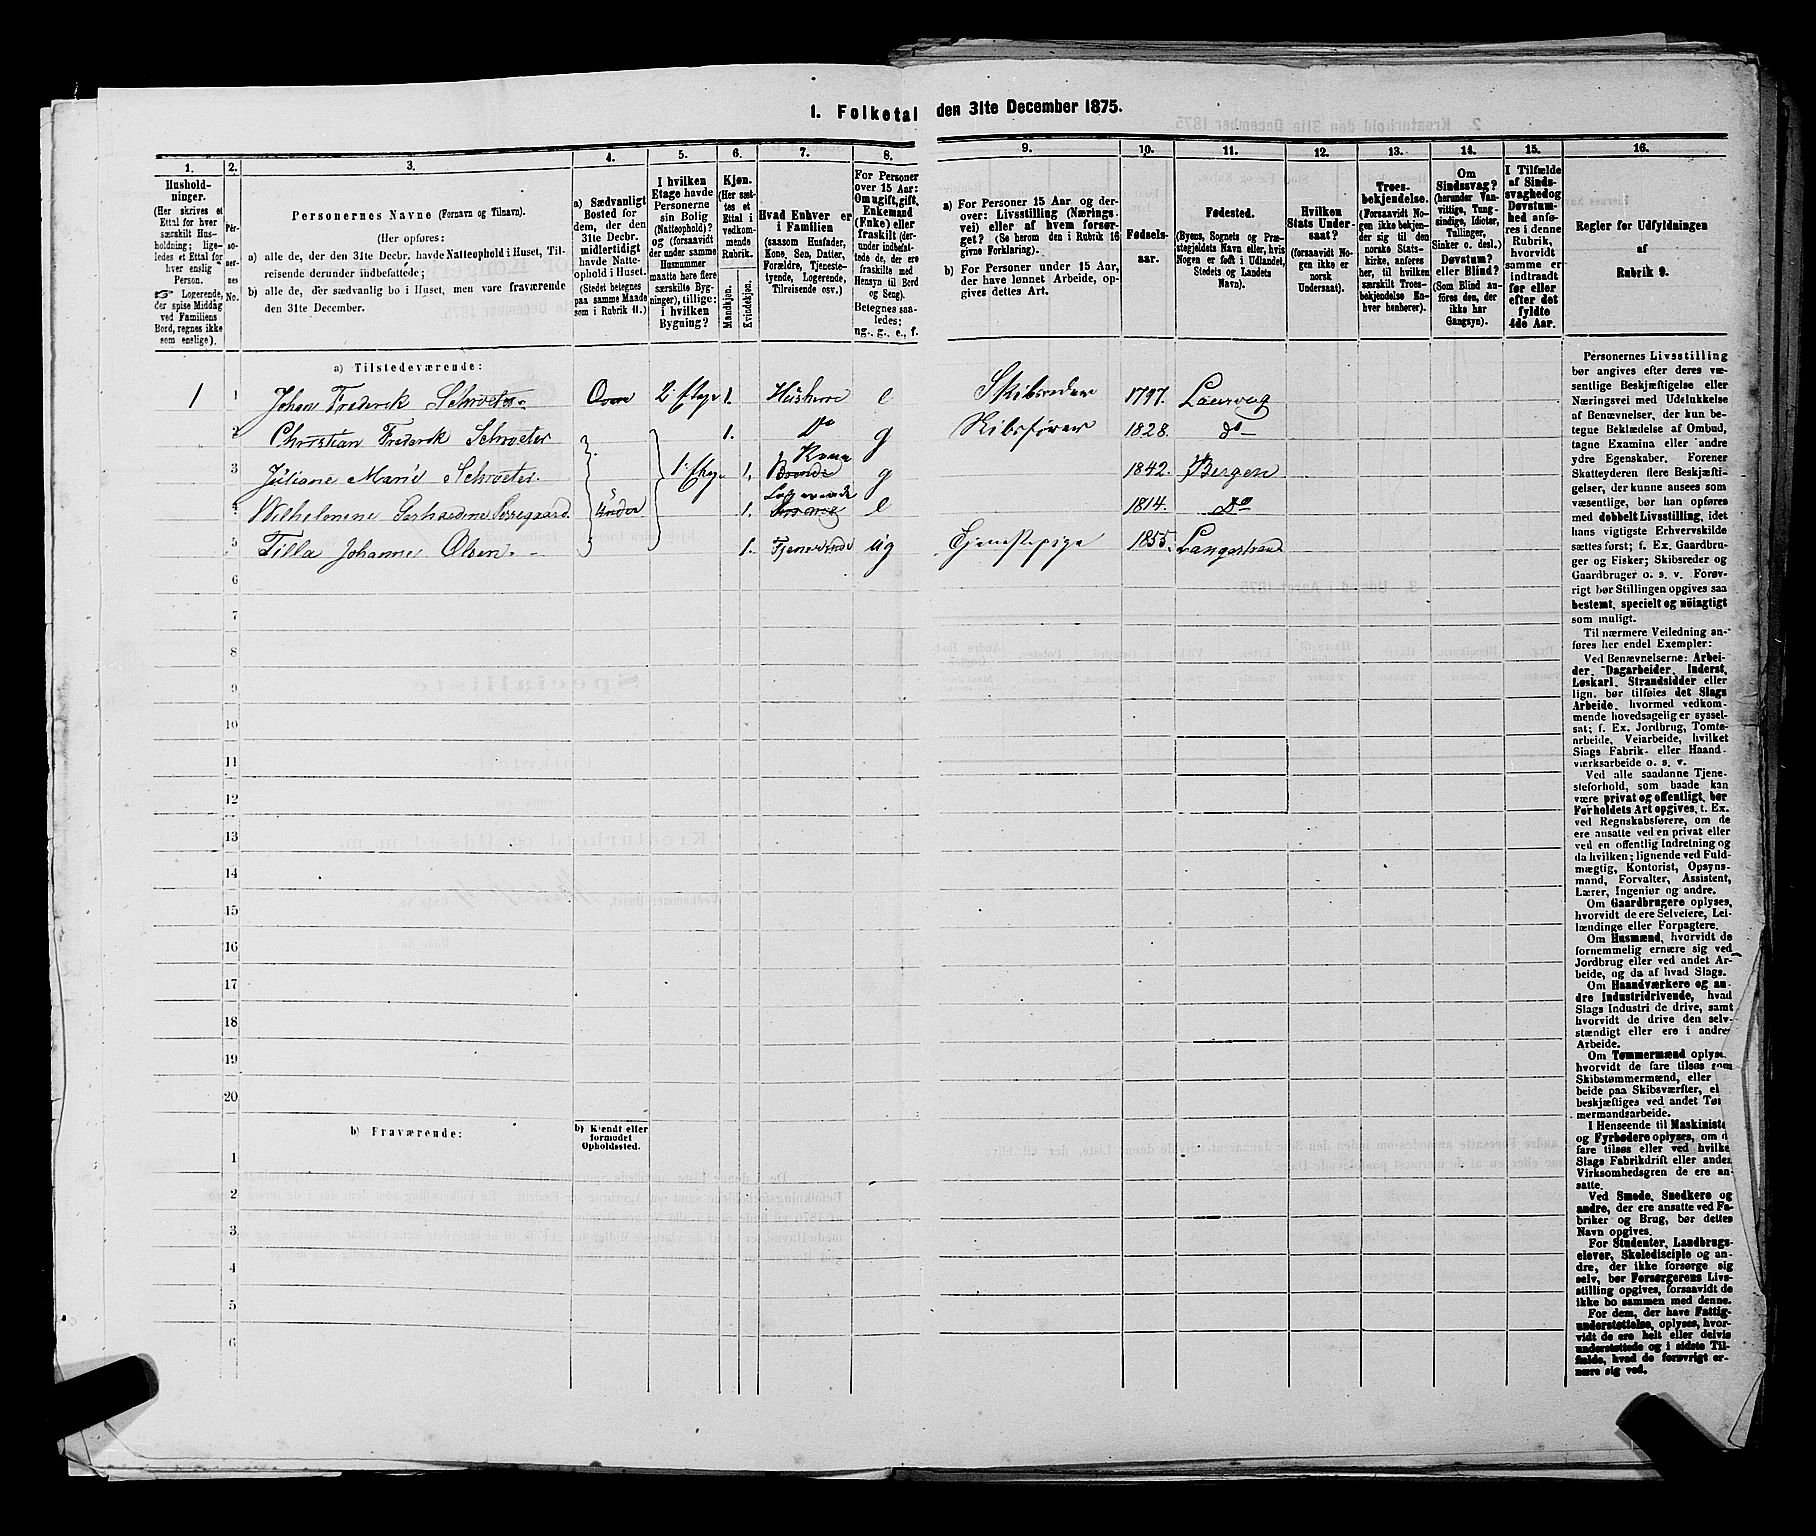 1. Folketal den 31te December 1875.
1. 2. 3. 4. 5. 6. 7. 8. 9. 10. 11. 12. 13. 14. 15. 16.
Hushold-
ninger.
(Her skrives et
Ettal for hver
særskilt Hus-
holdning; lige-
ledes et Ettal for
hver enslig
Person.
☞ Logerende,
der spise Middag
ved Familiens
Bord, regnes ikke
som enslige).
Per-
so-
ner-
nes
No.
Personernes Navne (Fornavn og Tilnavn).
(Her opføres:
a) alle de, der den 31te Decbr. havde Natteophold i Huset, Til-
reisende derunder indbefattede;
b) alle de, der sædvanlig bo i Huset, men vare fraværende
den 31te December.
a) Sædvanligt
Bosted for
dem, der den
31te Decbr.
midlertidigt
havde Natte-
ophold i Huset.
(Stedet betegnes
paa samme Maade
som i Rubrik 11.)
I hvilken
Etage havde
Personerne
sin Bolig
(Natteophold)?
og (forsaavidt
der under samme
Husnummer
maatte høre flere
særskilte Byg-
ninger), tillige:
i hvilken
Bygning?
Kjøn.
(Her sæt-
tes et
Ettal i
vedkom-
mende
Rubrik.
Mandkjøn.
Kvindekjøn.
Hvad Enhver er
i Familien
(saasom Husfader,
Kone, Søn, Datter,
Forældre, Tjeneste-
tyende, Logerende,
Tilreisende osv.)
For Personer
over 15 Aar:
Om ugift, gift,
Enkemand
(Enke) eller
fraskilt (der-
under indbefat-
tede de, der ere
fraskilte med
Hensyn til Bord
og Seng).
Betegnes saa-
ledes:
ug., g., e., f.
a) For Personer 15 Aar og der-
over: Livsstilling (Nærings-
vei) eller af hvem forsør-
get? (Se herom den i Rubrik 16
givne Forklaring).
b) For Personer under 15 Aar,
der have lønnet Arbeide, op-
gives dettes Art.
Fødsels-
aar.
Fødested.
(Byens, Sognets og Præ-
stegjeldets Navn eller, hvis
Nogen er født i Udlandet,
Stedets og Landets
Navn).
Hvilken
Stats Under-
saat?
(forsaavidt No-
gen ikke er
norsk
Undersaat).
Troes-
bekjendelse.
(Forsaavidt No-
gen ikke bekjen-
der sig til den
norske Stats-
kirke, anføres
her, til hvilken
særskilt Troes-
bekjendelse En-
hver henhører).
Om
Sindssvag?
(herunder Van-
vittige, Tung-
sindige, Idioter,
Tullinger,
Sinker o. desl.)
Døvstum?
eller Blind?
(Som Blind an-
føres den, der
ikke har
Gangsyn).
I Tilfælde
af Sinds-
svaghed og
Døvstum-
hed anfø-
res i denne
Rubrik,
hvorvidt
samme er
indtraadt
før eller
efter det
fyldte
4de Aar.
Regler for Udfyldningen
af
Rubrik 9.
a) Tilstedeværende:
1 1 Johan Frederik Schroeter. Ovre 2. Etage 1. Husherre e Skibsreder 1797. Laurvig
2 Christian Frederik Schroeter 1. Do g Skibsfører 1828. do
Kone
3 Juliane Marie Schroeter. 1. Etage 1. g 1842. Bergen
Logerende
4 Wilhelmene Gerhardine Undre 1. e 1814. Do
5 Tilla Johanne Olsen. 1. Tjenerinde ug Tjenestepige 1855. Langestrand
6
7
8
9
10
11
12
13
14
15
16
17
18
19
20
b) Fraværende:
b) Kjendt eller
formodet
Opholdssted.
1
2
3
4
5
6
Personernes Livsstilling
bør angives efter deres væ-
sentlige Beskjæftigelse eller
Næringsvei med Udelukkelse
af Benævnelser, der kun be-
tegne Beklædelse af Ombud,
tagne Examina eller andre
ydre Egenskaber. Forener
Skatteyderen flere Beskjæfti-
gelser, der kunne ansees som
væsentlige, bør han opføres
med dobbelt Livsstilling, idet
hans vigtigste Erhvervskilde
sættes først; f. Ex. Gaardbru-
ger og Fisker; Skibsreder og
Gaardbruger o. s. v. Forøv-
rigt bør Stillingen opgives saa
bestemt, specielt og nøiagtigt
som muligt.
Til nærmere Veiledning an-
føres her endel Exempler:
Ved Benævnelserne: Arbei-
der, Dagarbeider, Inderst,
Løskarl, Strandsidder eller
lign. bør tilføies det Slags
Arbeide, hvormed vedkom-
mende hovedsagelig er syssel-
sat; f. Ex. Jordbrug, Tomte-
arbeide, Veiarbeide, hvilket
Slags Fabrik- eller Haand-
værksarbeide o. s. v.
Ved alle saadanne Tjene-
steforhold, som baade kan
være privat og offentligt, bør
Forholdets Art opgives, t. Ex.
ved Regnskabsførere, om de
ere ansatte ved en privat eller
ved en offentlig Indretning og
da hvilken; lignende ved Fuld-
mægtig, Kontorist, Opsyns-
mand, Forvalter, Assistent,
Lærer, Ingeniør og andre.
Om Gaardbrugere oplyses,
hvorvidt de ere Selveiere, Lei-
lændinge eller Forpagtere.
Om Husmænd, hvorvidt de
fornemmelig ernære sig ved
Jordbrug eller ved andet Ar-
beide, og da af hvad Slags.
Om Haandværkere og an-
dre Industridrivende, hvad
Slags Industri de drive, samt
hvorvidt de drive den selv-
stændigt eller ere i andres
Arbeide.
Om Tømmermænd oplyses
hvorvidt de fare tilsøs som
Skibstømmermænd, eller
beide paa Skibsværfter, el
beskjæftiges ved andet Tøm-
mermandsarbeide.
I Henseende til Maskinister
og Fyrbødere oplyses, om de
fare tilsøs eller ved hvilket
Slags Fabrikdrift eller anden
Virksomhedsgren de ere an-
satte.
Ved Smede, Snedkere og
andre, der ere ansatte ved Fa-
briker og Brug, bør dettes
Navn opgives.
For Studenter, Landbrugs-
elever, Skoledisciple og an-
dre, der ikke forsørge sig
selv, bør Forsørgerens Livs-
stilling opgives, forsaavidt de
ikke bo sammen med denne.
For dem, der have Fattig-
understøttelse, oplyses, hvor-
vidt de ere helt eller delvis
understøttede og i sidste Til-
fælde, hvad de forøvrigt er-
nære sig ved.